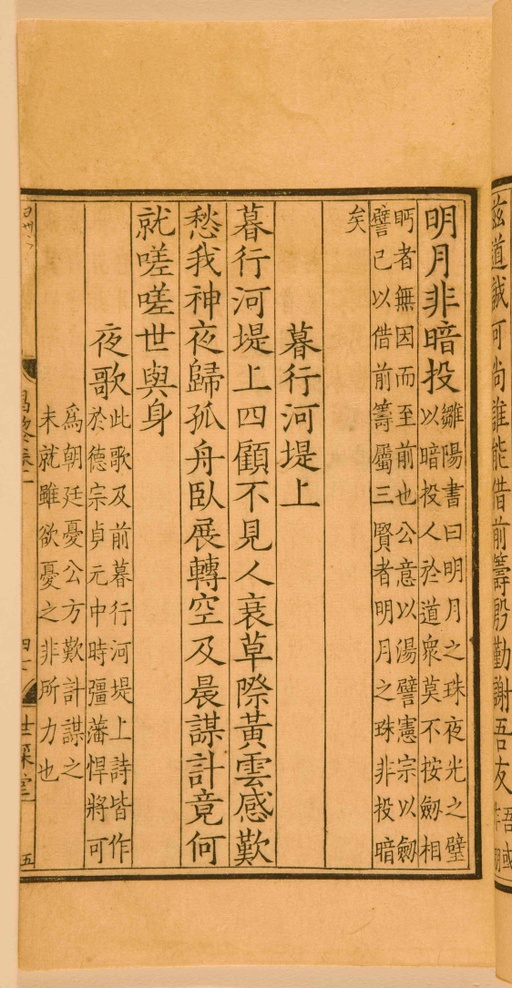 茲道誠可尚誰能借前籌殷勤謝吾友
明月非暗投
雛陽書曰明月之珠夜光之璧
以暗投人於道衆莫不按劒相
眄者無因而至前也公意以湯譬憲宗以劒
譬已以借前籌屬三賢者明月之珠非投暗
矣
暮行河堤上
暮行河堤上四顧不見人衰草際黃雲感歎
愁我神夜歸孤舟臥展轉空及晨謀計竟何
就嗟嗟世與身
夜歌
此歌及前暮行河堤上詩皆作
於德宗貞元中時彊藩悍將可
爲朝廷憂公方歎計謀之
未就雖欲憂之非所力也
五